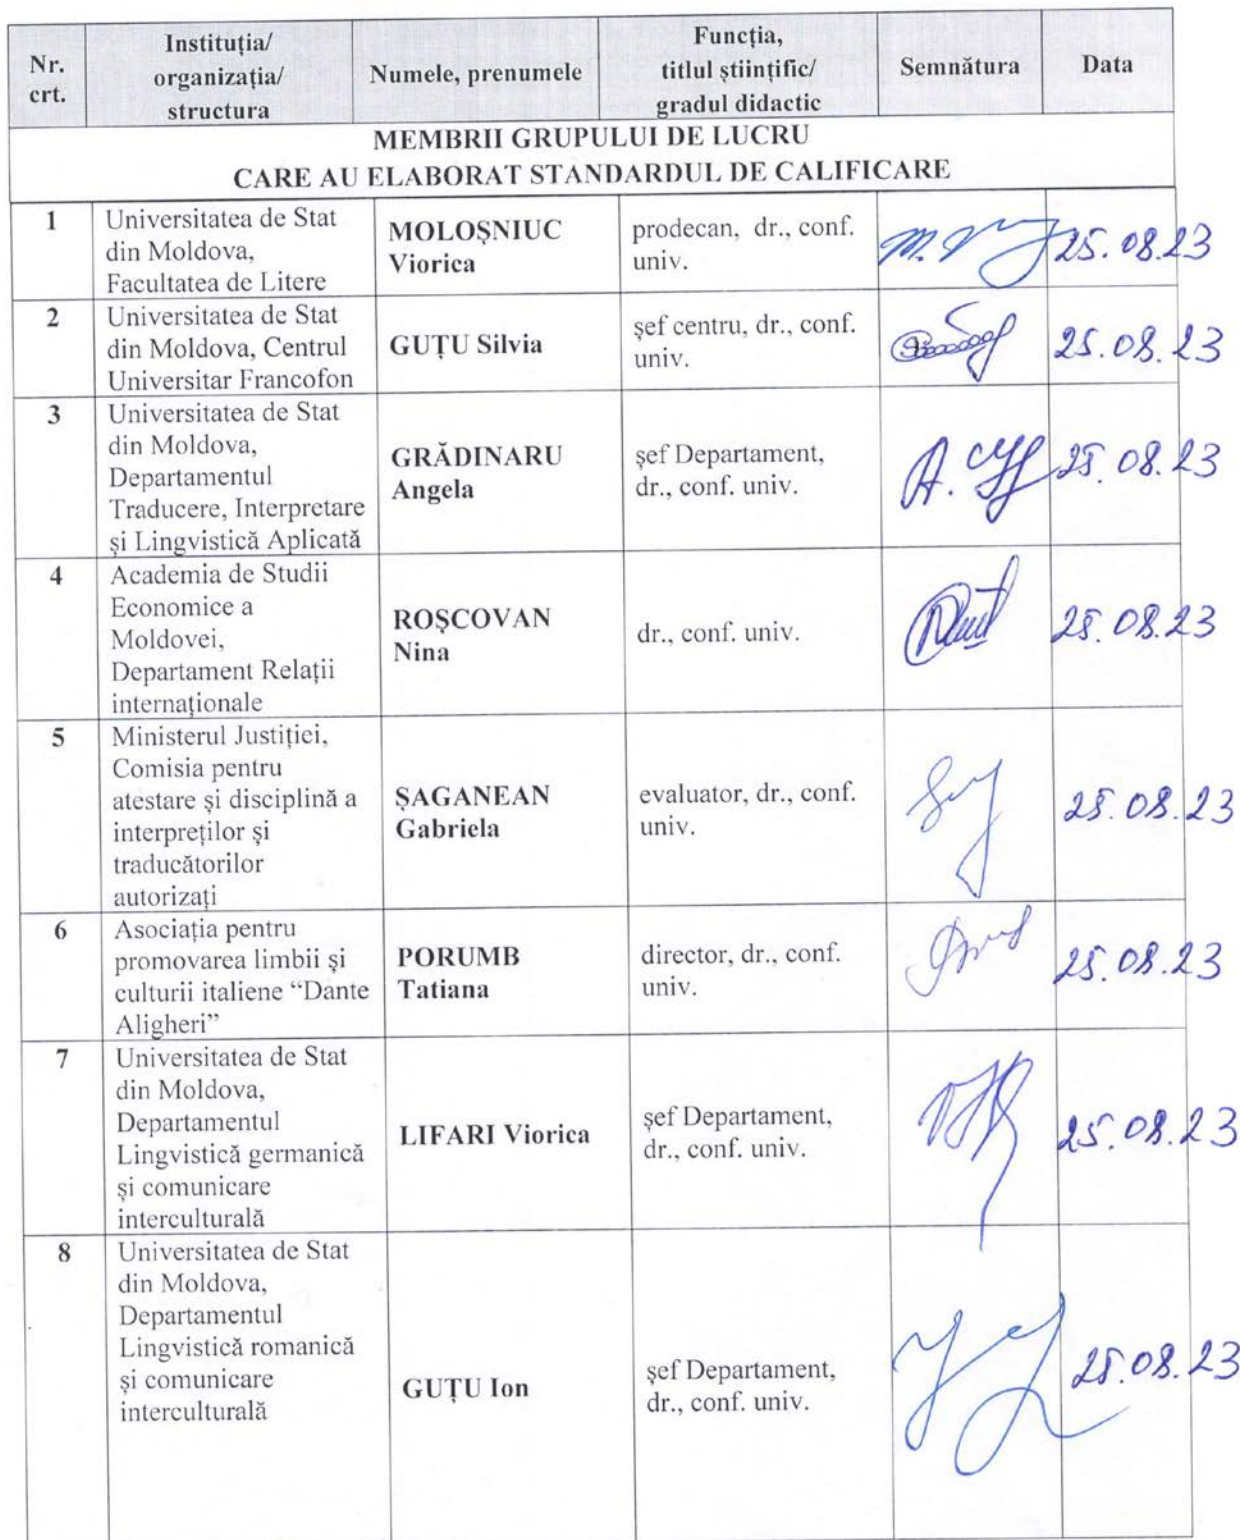 Nr. crt.
Instituția/
organizația/
structura
Numele, prenumele
Funcția,
titlul științific/
gradul didactic
Semnătura
Data
MEMBRII GRUPULUI DE LUCRU
CARE AU ELABORAT STANDARDUL DE CALIFICARE
1
Universitatea de Stat
din Moldova,
Facultatea de Litere
MOLOȘNIUC
Viorica
prodecan, dr., conf.
univ.
25.08.23
2
Universitatea de Stat
din Moldova, Centrul
Universitar Francofon
GUȚU Silvia
șef centru, dr., conf.
univ.
25.08.23
3
Universitatea de Stat
din Moldova,
Departamentul
Traducere, Interpretare
și Lingvistică Aplicată
GRĂDINARU
Angela
șef Departament,
dr., conf. univ.
25.08.23
4
Academia de Studii
Economice a
Moldovei,
Departament Relații
internaționale
ROȘCOVAN
Nina
dr., conf. univ.
25.08.23
5
Ministerul Justiției,
Comisia pentru
atestare și disciplină a
interpreților și
traducătorilor
autorizați
ȘAGANEAN
Gabriela
evaluator, dr., conf.
univ.
25.08.23
6
Asociația pentru
promovarea limbii și
culturii italiene “Dante
Aligheri”
PORUMB
Tatiana
director, dr., conf.
univ.
25.08.23
7
Universitatea de Stat
din Moldova,
Departamentul
Lingvistică germanică
și comunicare
interculturală
LIFARI Viorica
șef Departament,
dr., conf. univ.
25.08.23
8
Universitatea de Stat
din Moldova,
Departamentul
Lingvistică romanică
și comunicare
interculturală
GUȚU Ion
șef Departament,
dr., conf. univ.
25.08.23